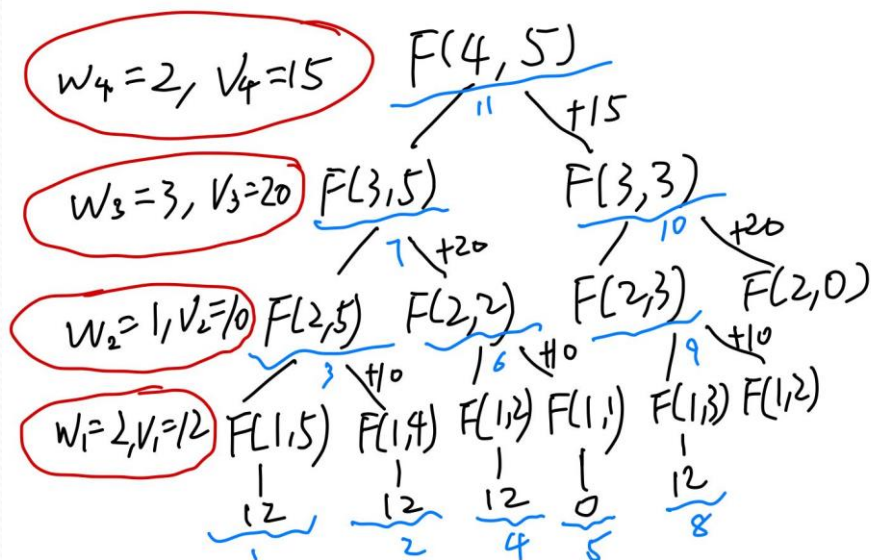 w₄=2, V₄=15 F(4,5)
11 +15
w₃=3, V₃=20 F(3,5) F(3,3)
7 +20 10 +20
w₂=1, V₂=10 F(2,5) F(2,2) F(2,3) F(2,0)
3 +10 6 +10 9 +10
w₁=2, V₁=12 F(1,5) F(1,4) F(1,2) F(1,1) F(1,3) F(1,2)
12 12 12 0 12
1 2 4 5 8